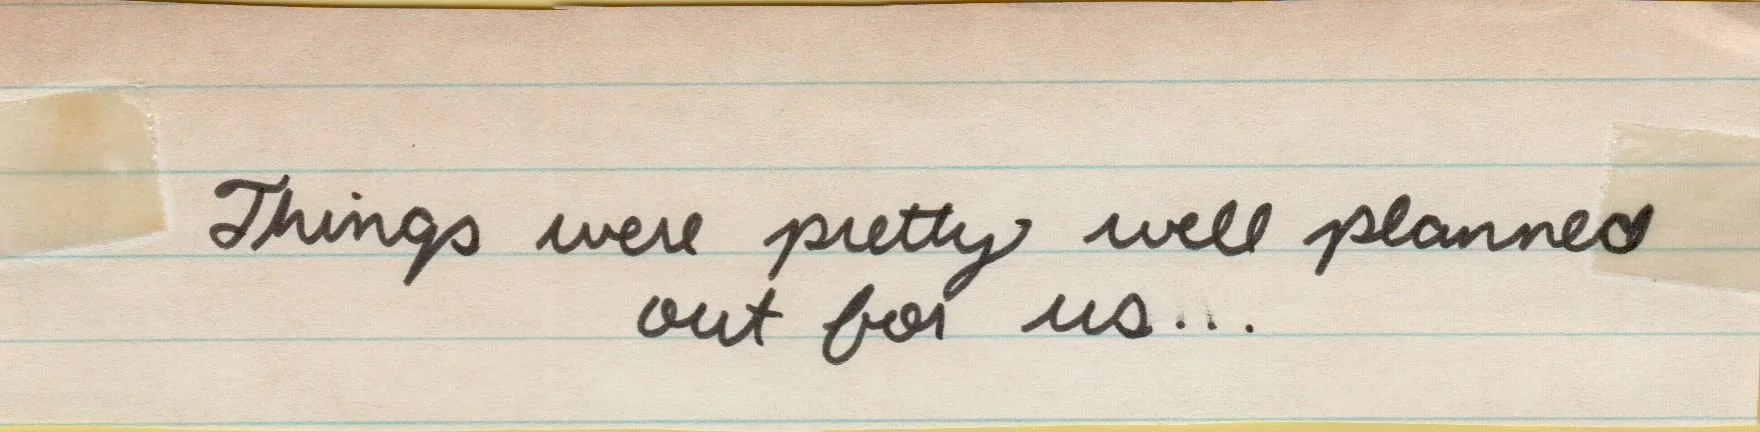 Things were pretty well planned
out for us...